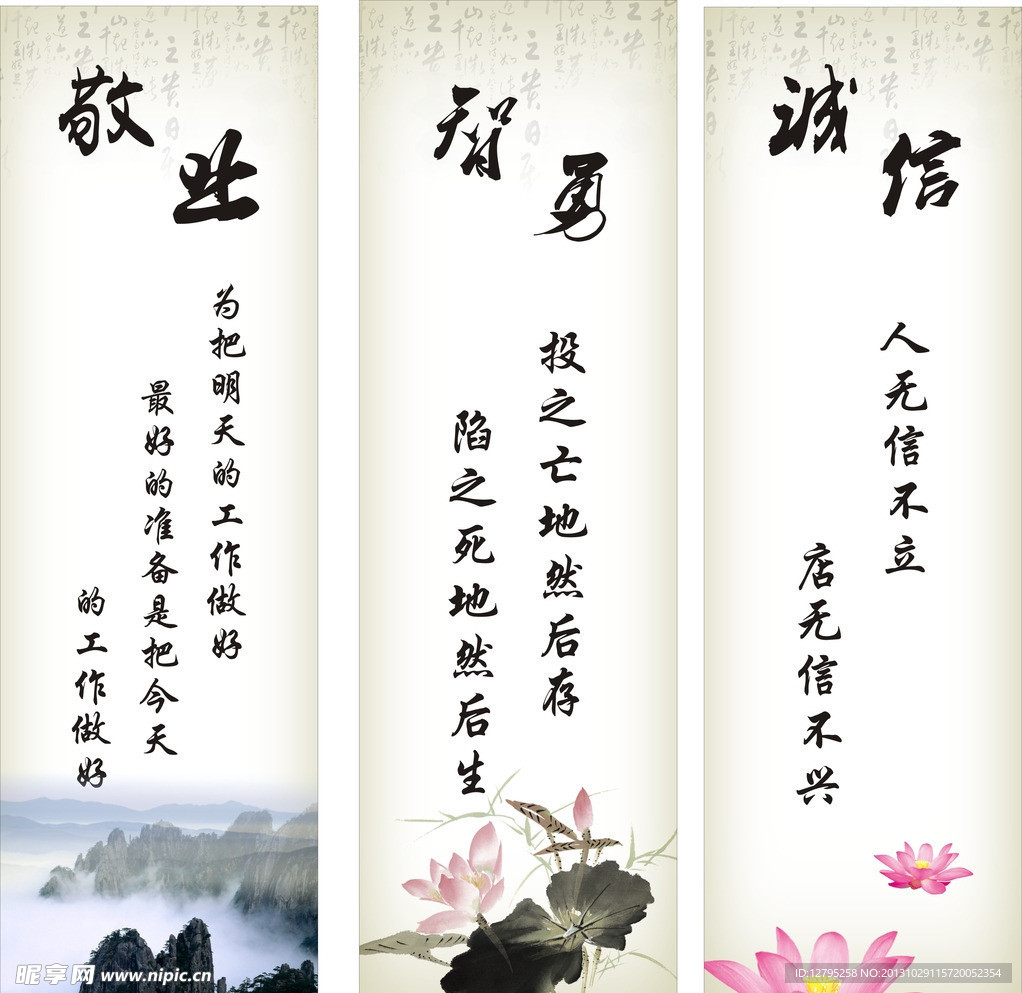 敬业
为把明天的工作做好
最好的准备是把今天
的工作做好
智勇
投之亡地然后存
陷之死地然后生
诚信
人无信不立
店无信不兴
昵享网 www.nipic.cn
ID:12795258 NO:20131029115720052354